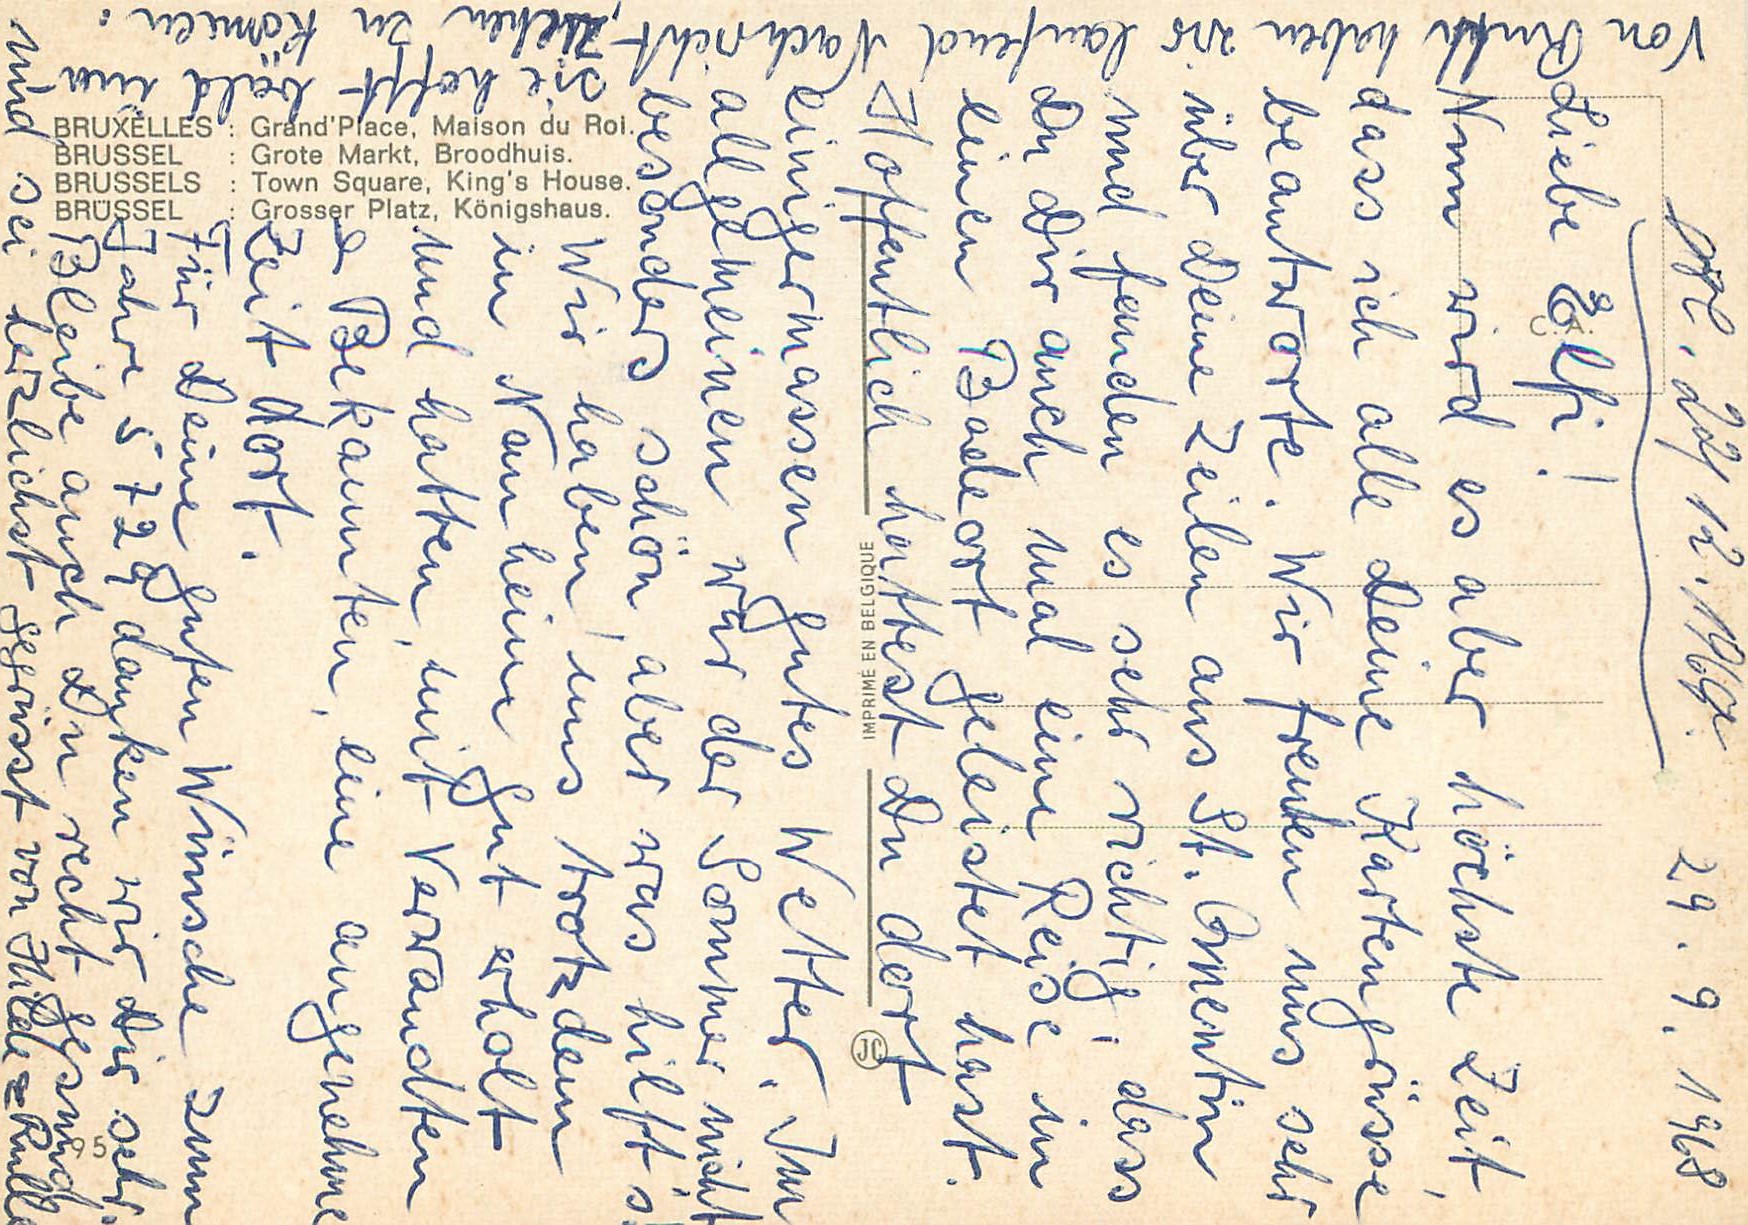 29. 9. 1968
Liebe Elfi!
Nun wird es aber höchste Zeit,
dass ich alle Deine Kartengrüsse
beantworte. Wir freuten uns sehr
über Deine Zeilen aus St. Corentin
und fanden es sehr richtig, dass
Du Dir auch mal eine Reise in
einen Badeort geleistet hast.
Hoffentlich hattest Du dort
einigermassen gutes Wetter. Im
allgemeinen war der Sommer nicht
besonders schön, aber was hilft's.
Wir haben uns trotzdem
in Nauheim gut erholt
und hatten, mit Verwandten
& Bekannten, eine angenehme
Zeit dort.
Für Deine guten Wünsche zum
Jahre 5729 danken wir Dir sehr.
Bleibe auch Du recht gesund
und sei herzlichst gegrüsst von Hilde =
Von Ruth haben wir laufend Nachricht,
sie hofft bald mal
zu kommen.
BRUXELLES : Grand'Place, Maison du Roi.
BRUSSEL : Grote Markt, Broodhuis.
BRUSSELS : Town Square, King's House.
BRÜSSEL : Grosser Platz, Königshaus.
IMPRIME EN BELGIQUE
JC
95